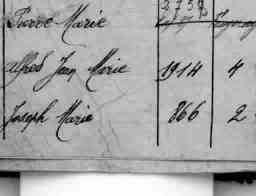 Pierre Marie
Alfred Jean Marie 1914 4
Joseph Marie 866 2